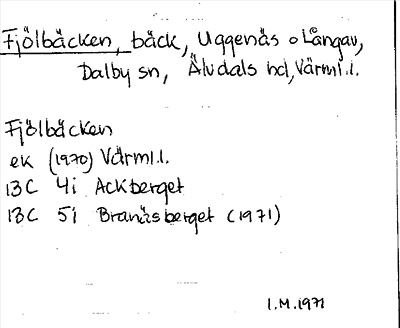 Fjölbäcken, bäck, Uggenäs o Långav,
Dalby sn, Älvdals hd, Värml.l.
Fjölbäcken
ek (1970) Värml.l.
13C 4i Ackberget
13C 5i Branäsberget (1971)
I.M. 1971